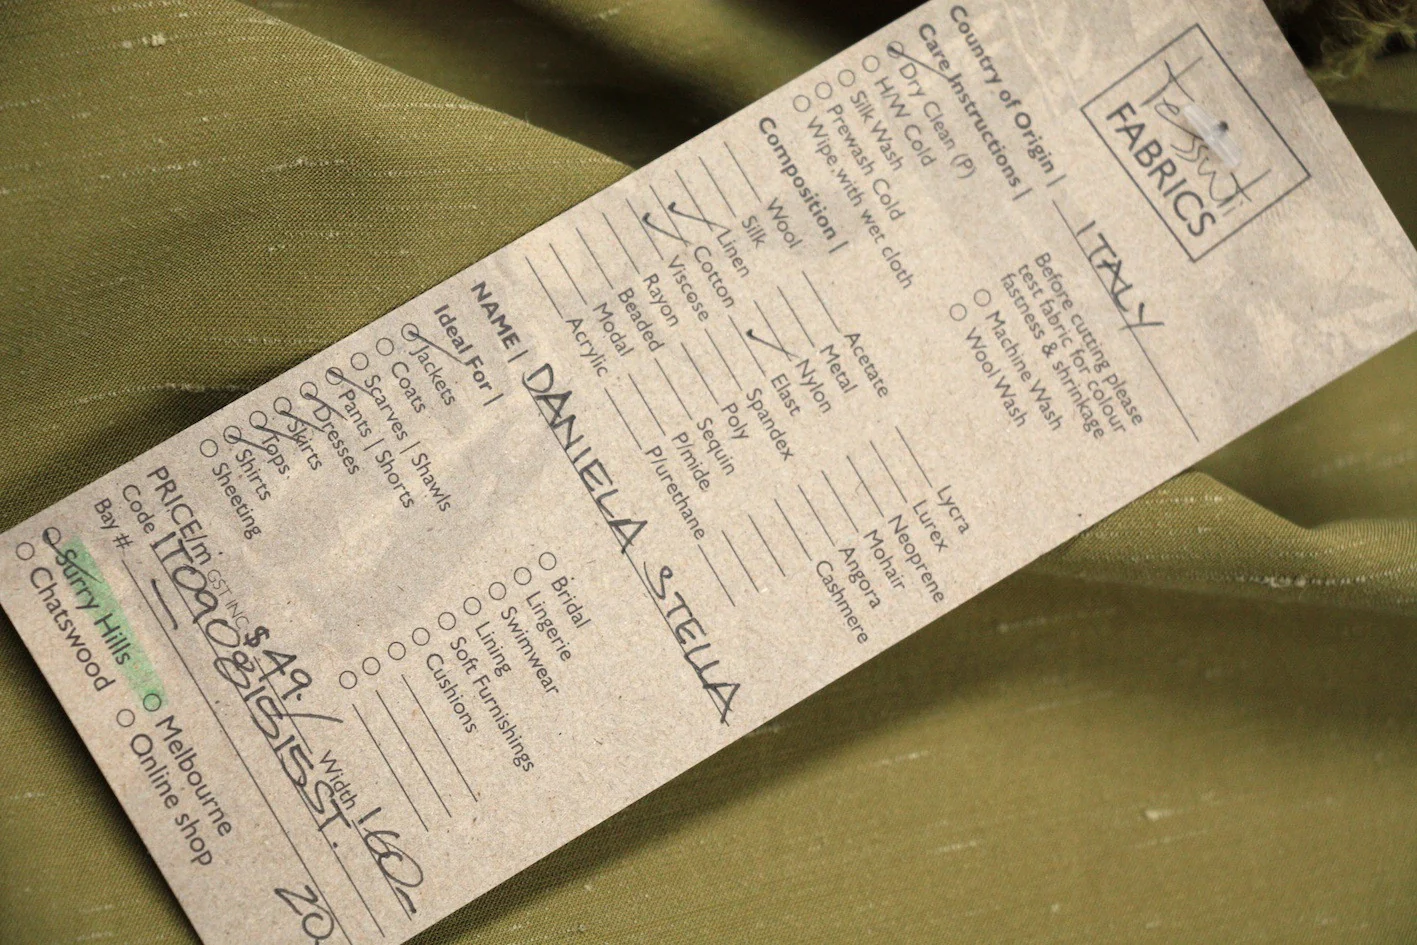 Tessuti
FABRICS
Country of Origin | ITALY
Care Instructions |
Dry Clean (P)
H/W Cold
Silk Wash
Prewash Cold
Wipe with wet cloth
Before cutting please
test fabric for colour
fastness & shrinkage
Machine Wash
Wool Wash
Composition |
Wool Acetate Lycra
Silk Metal Lurex
Linen Nylon Neoprene
Cotton Elast Mohair
Viscose Spandex Angora
Rayon Poly Cashmere
Beaded Sequin
Modal P/mide
Acrylic P/urethane
NAME | DANIELA STELLA
Ideal For |
Jackets Bridal
Coats Lingerie
Scarves | Shawls Swimwear
Pants | Shorts Soft Furnishings
Dresses Lining
Skirts Cushions
Tops
Shirts
Sheeting
PRICE/m GST INC $49./ Width 160
Code
Bay # 20
Surry Hills Melbourne
Chatswood Online shop